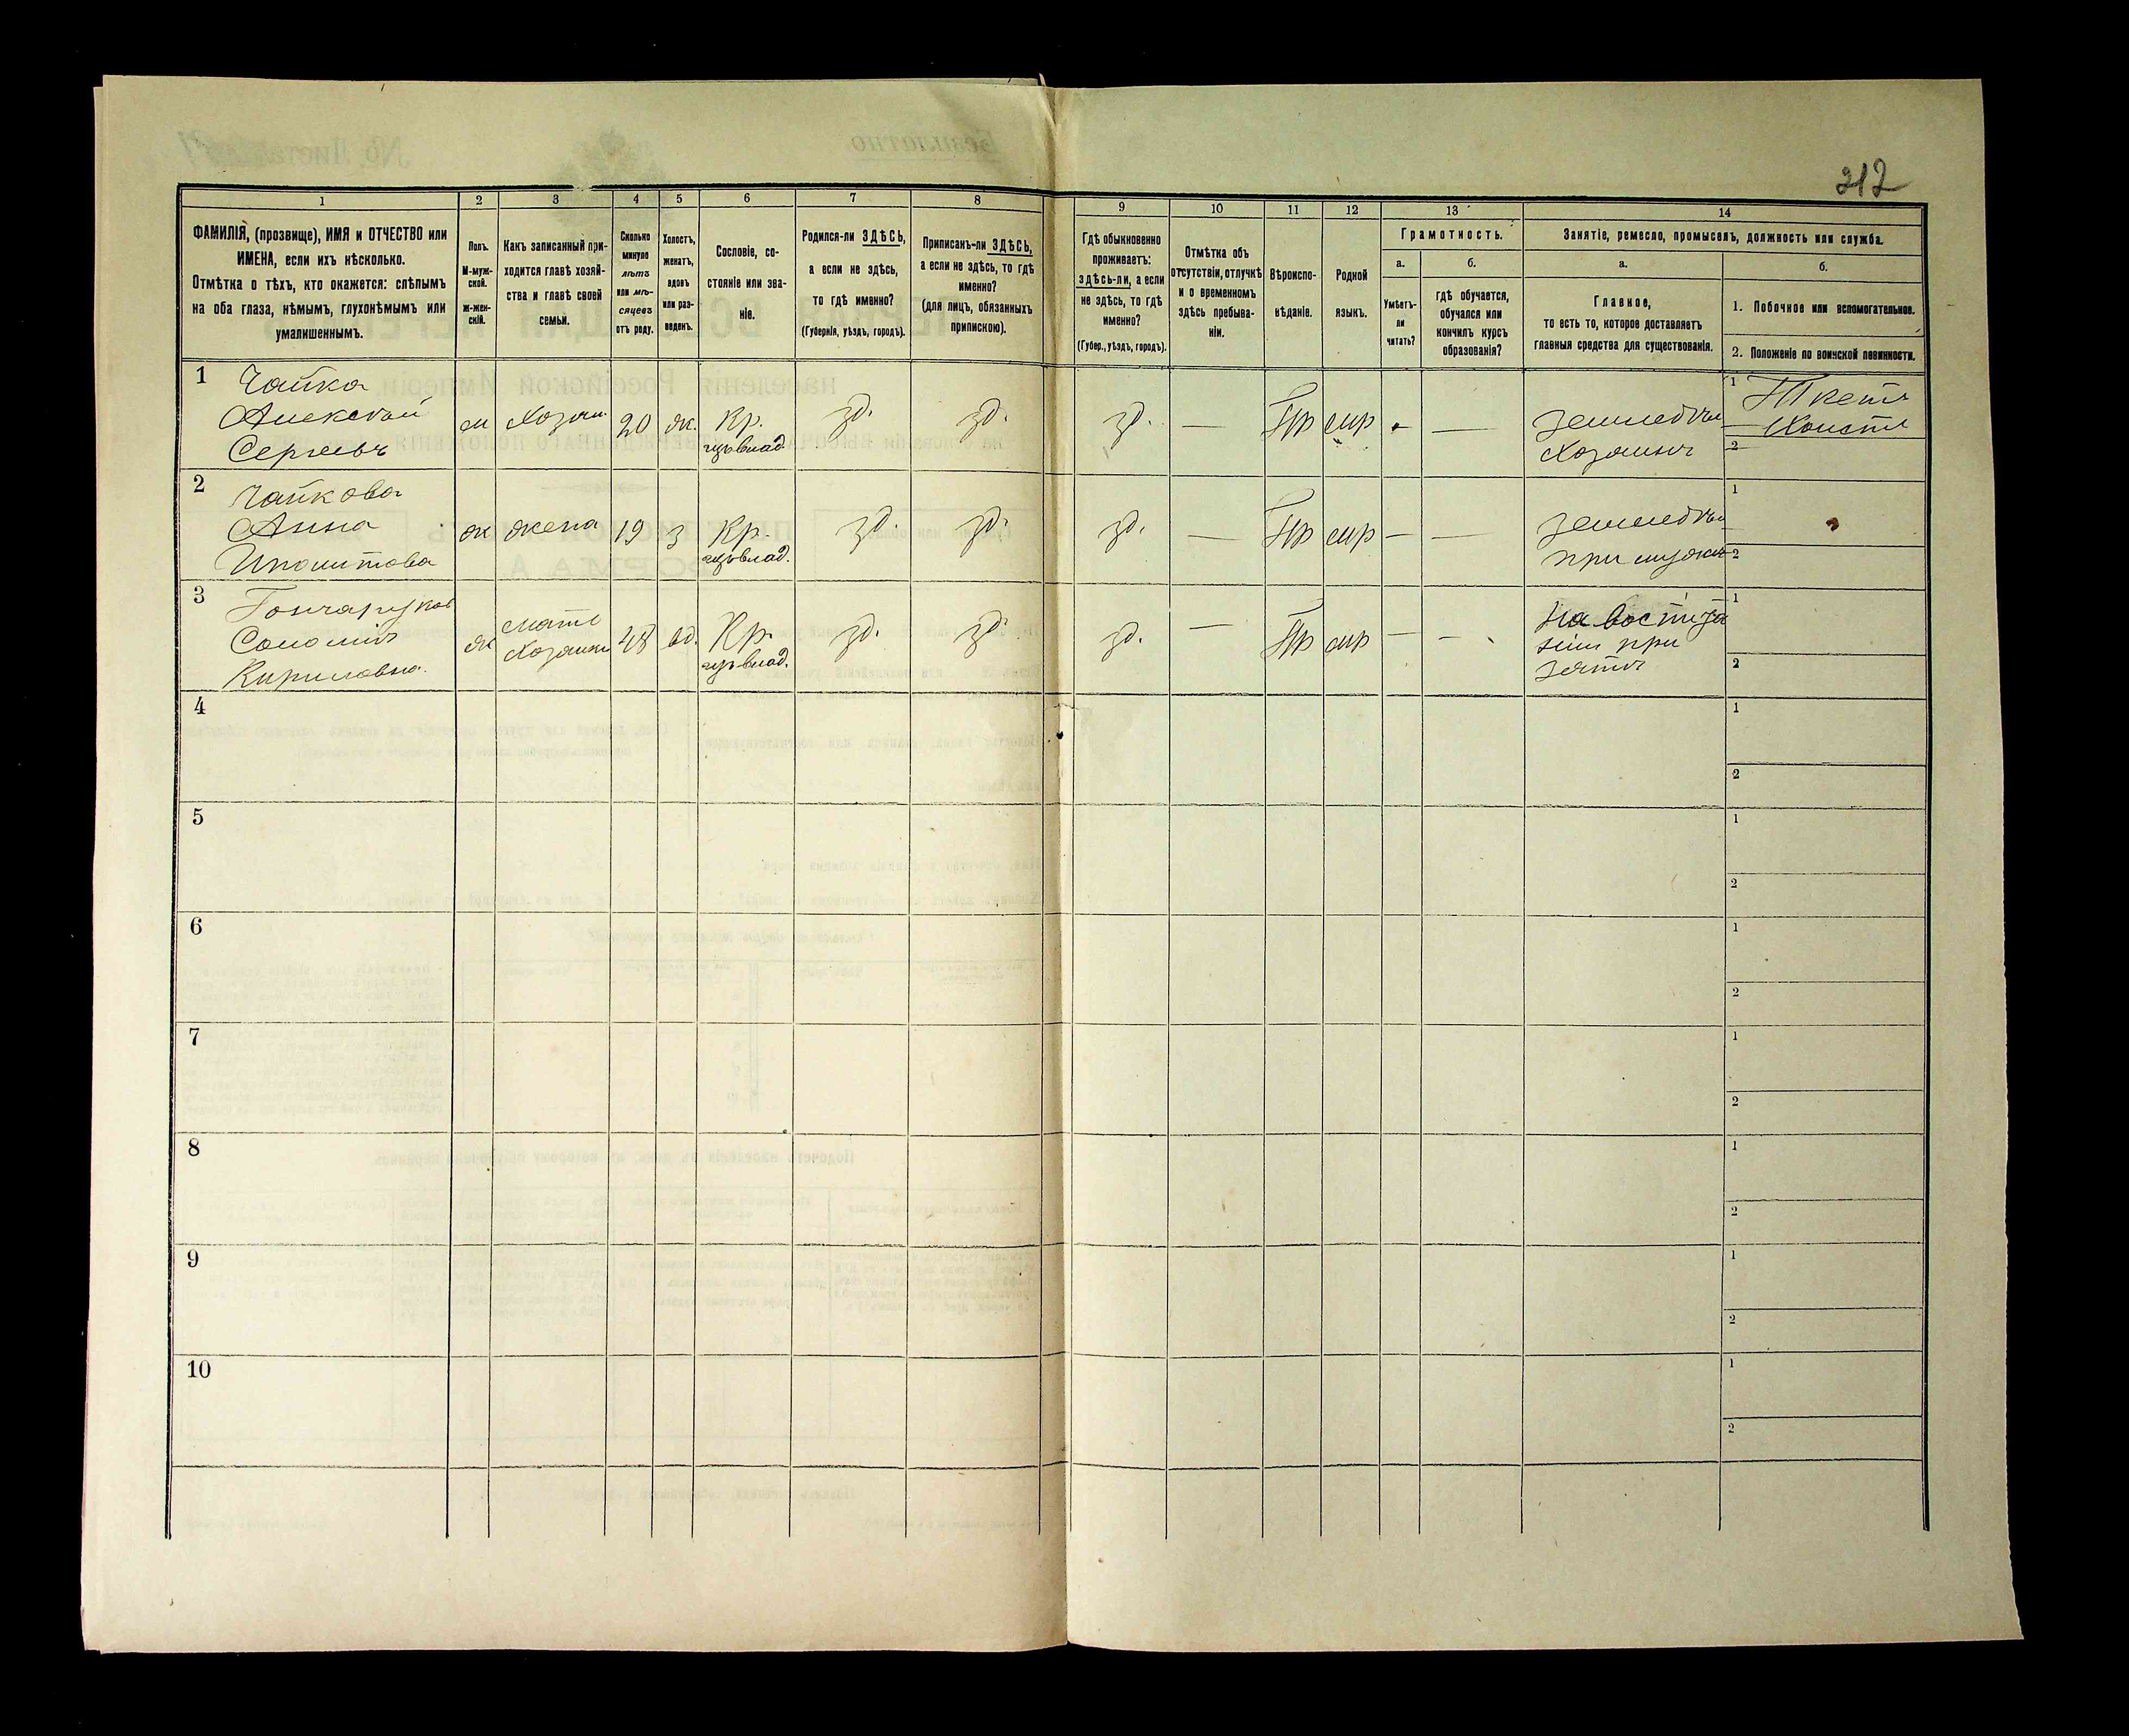 212
1 2 3 4 5 6 7 8 9 10 11 12 13 14
ФАМИЛІЯ, (прозвище), ИМЯ и ОТЧЕСТВО или
ИМЕНА, если ихъ нѣсколько.
Отмѣтка о тѣхъ, кто окажется: слѣпымъ
на оба глаза, нѣмымъ, глухонѣмымъ или
умалишеннымъ.
Полъ.
М-муж-
ской.
ж-жен-
скій.
Какъ записанный при-
ходится главѣ хозяй-
ства и главѣ своей
семьи.
Сколько
минуло
лѣтъ
или мѣ-
сяцевъ
отъ роду.
Холостъ,
женатъ,
вдовъ
или раз-
веденъ.
Сословіе, со-
стояніе или зва-
ніе.
Родился-ли ЗДѢСЬ,
а если не здѣсь,
то гдѣ именно?
(Губернія, уѣздъ, городъ).
Приписанъ-ли ЗДѢСЬ,
а если не здѣсь, то гдѣ
именно?
(для лицъ, обязанныхъ
припискою).
Гдѣ обыкновенно
проживаетъ:
здѣсь-ли, а если
не здѣсь, то гдѣ
именно?
(Губер., уѣздъ, городъ).
Отмѣтка объ
отсутствіи, отлучкѣ
и о временномъ
здѣсь пребыва-
ніи.
Вѣроиспо-
вѣданіе.
Родной
языкъ.
Грамотность.
а.
Умѣетъ-
ли
читать?
б.
гдѣ обучается,
обучался или
кончилъ курсъ
образованія?
Занятіе, ремесло, промыселъ, должность или служба.
а.
Главное,
то есть то, которое доставляетъ
главныя средства для существованія.
б.
1. Побочное или вспомогательное.
2. Положеніе по воинской повинности.
1 Чайка
Алексѣй
Сергѣевъ
м Хозяи. 20 ж. Кр.
зд. зд. зд. — Пр мр — —
Хозяинъ
1
2
2 Чайкова
Анна
Иполитова
ж жена 19 з Кр.
зд. зд. зд. — Пр мр — —
1
2
3
Кириловна.
ж мать
48 вд. Кр.
зд. зд. зд. — Пр мр — —
при
1
2
4
1
2
5
1
2
6
1
2
7
1
2
8
1
2
9
1
2
10
1
2